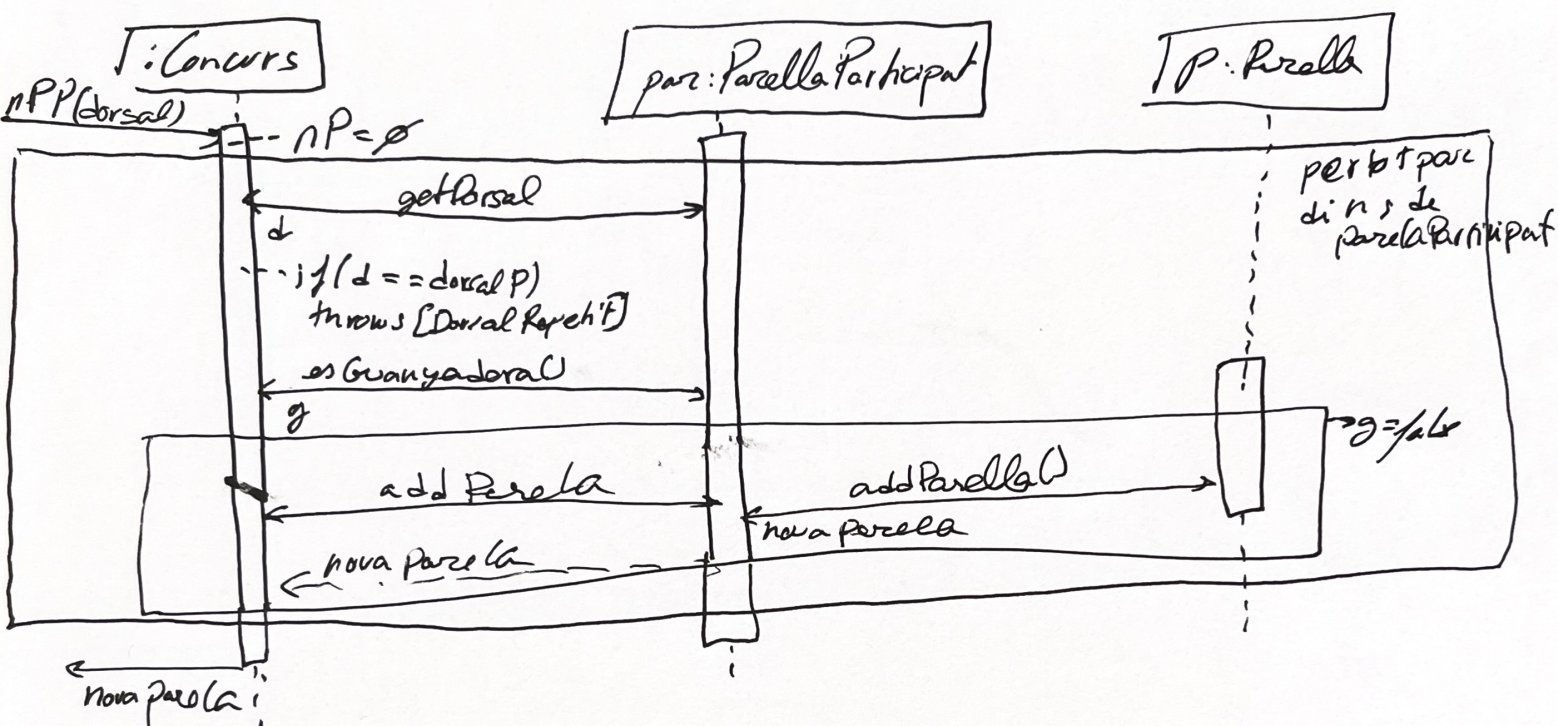 :Concurs
par:ParellaParticipat
p:Parella
nPP(dorsal)
nP=ø
per tot par
dins de
parelaParticipat
getDorsal
d
if(d==dorsalP)
throws [DorsalRepetit]
esGuanyadora()
g
g=false
add Parela
addParella()
nova parela
nova parela
nova parela